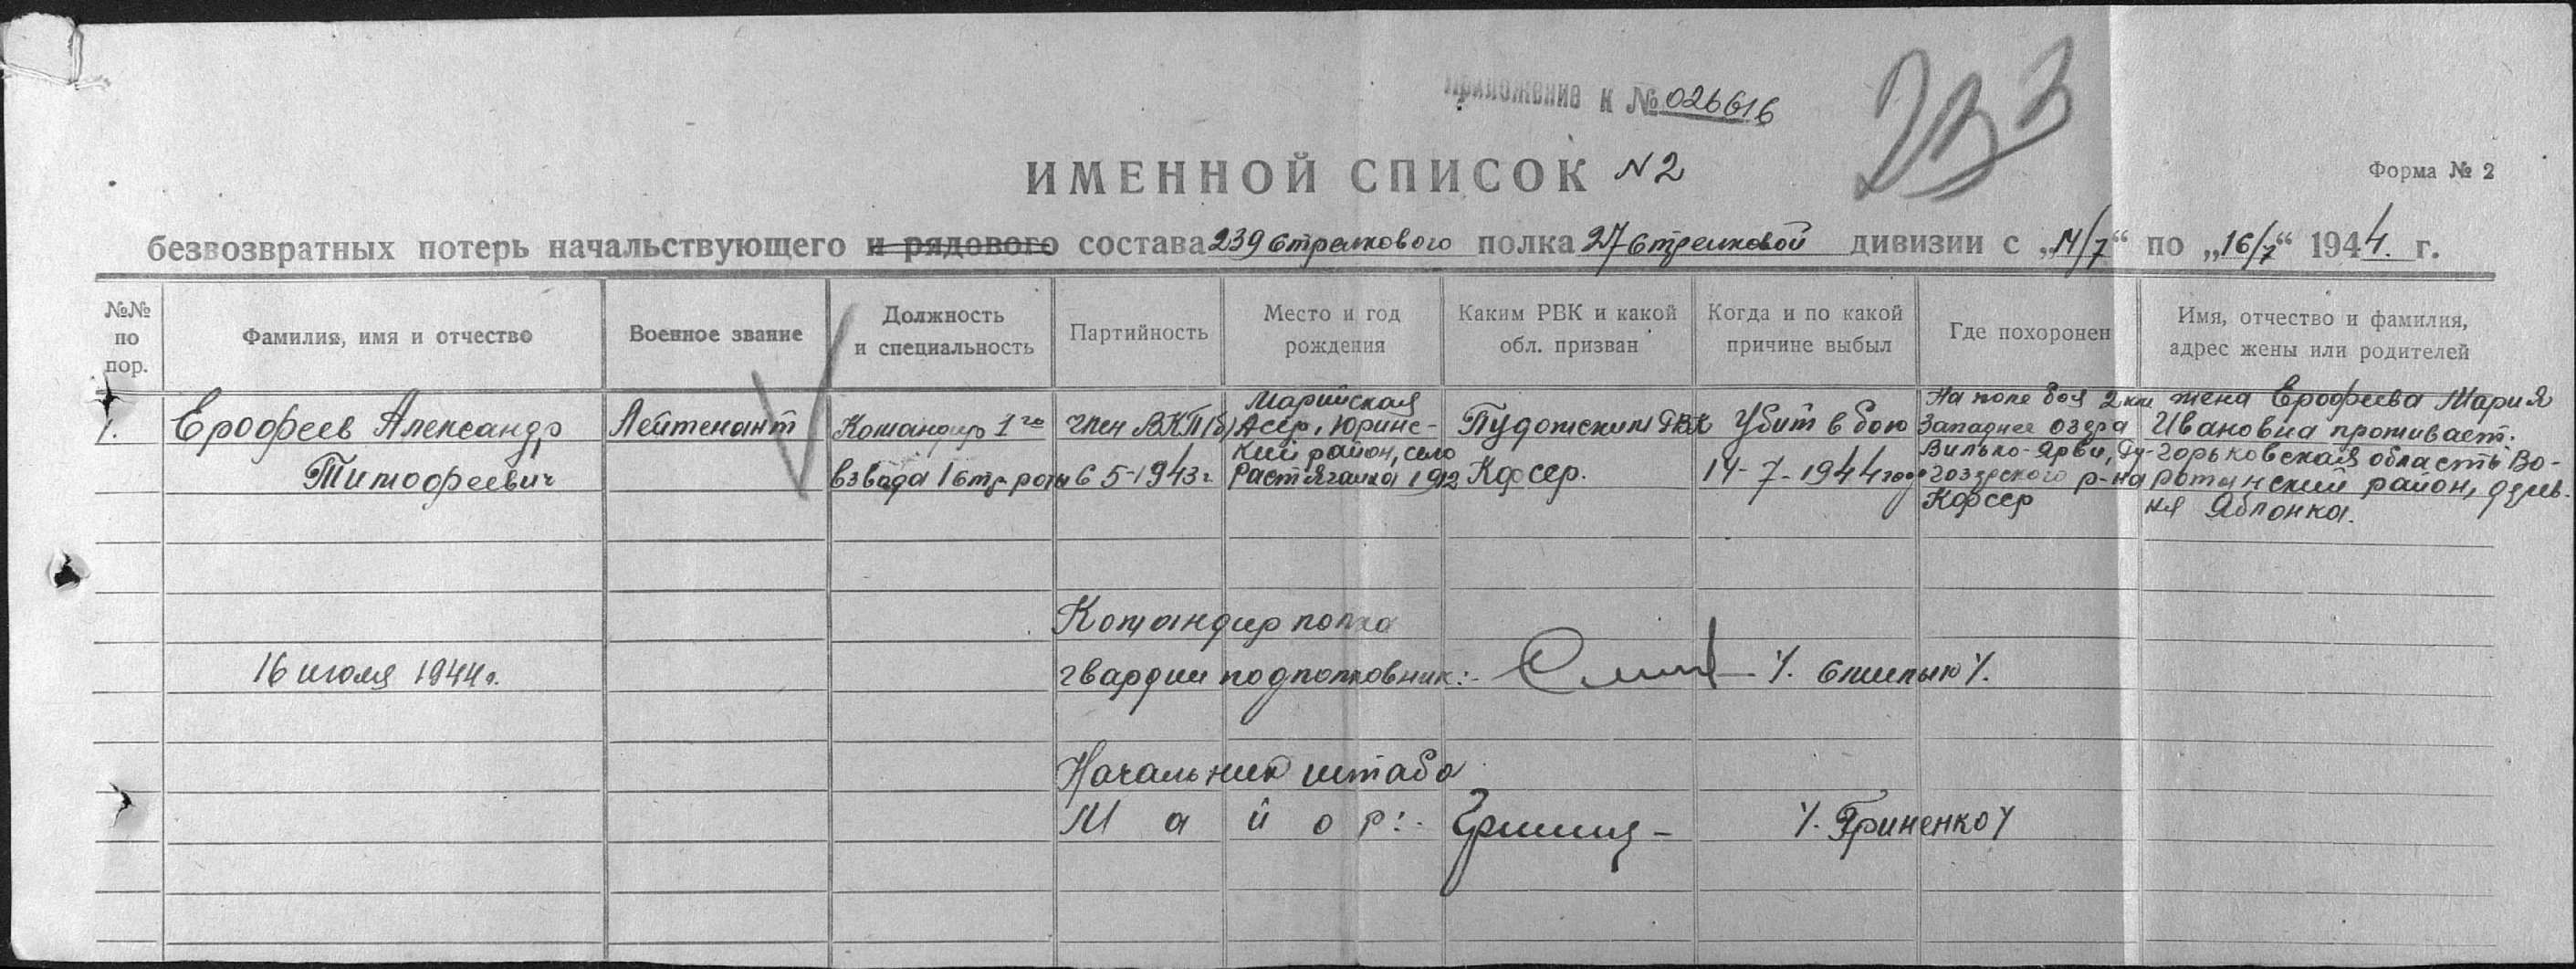 Приложение к № 026616
233
ИМЕННОЙ СПИСОК N 2
Форма № 2
безвозвратных потерь начальствующего и рядового состава 239 стрелкового полка 27 стрелковой дивизии с „14/7“ по „16/7“ 1944. г.
№№ по пор.
Фамилия, имя и отчество
Военное звание
Должность
и специальность
Партийность
Место и год
рождения
Каким РВК и какой
обл. призван
Когда и по какой
причине выбыл
Где похоронен
Имя, отчество и фамилия,
адрес жены или родителей
1.
Ерофеев Александр
Тимофеевич
Лейтенант
Командир 1го
взвода 1 стр. роты
член ВКП(б)
с 5-1943 г
Марийская
Асср, Юринс-
кий район, село
Растягаиха 1912
Пудожским РВК
Кфсср.
Убит в бою
14-7-1944 года
На поле боя 2 км
Западнее озера
Вилько-Ярви, Су-
гозерского р-на
Кфсср
жена Ерофеева Мария
Ивановна проживает.
Горьковская область Во-
ротынский район, дерев-
ня Яблонка.
Командир полка
16 июля 1944 г.
гвардии подполковник:-
Начальник штаба
Майор:-
/. Гриненко /